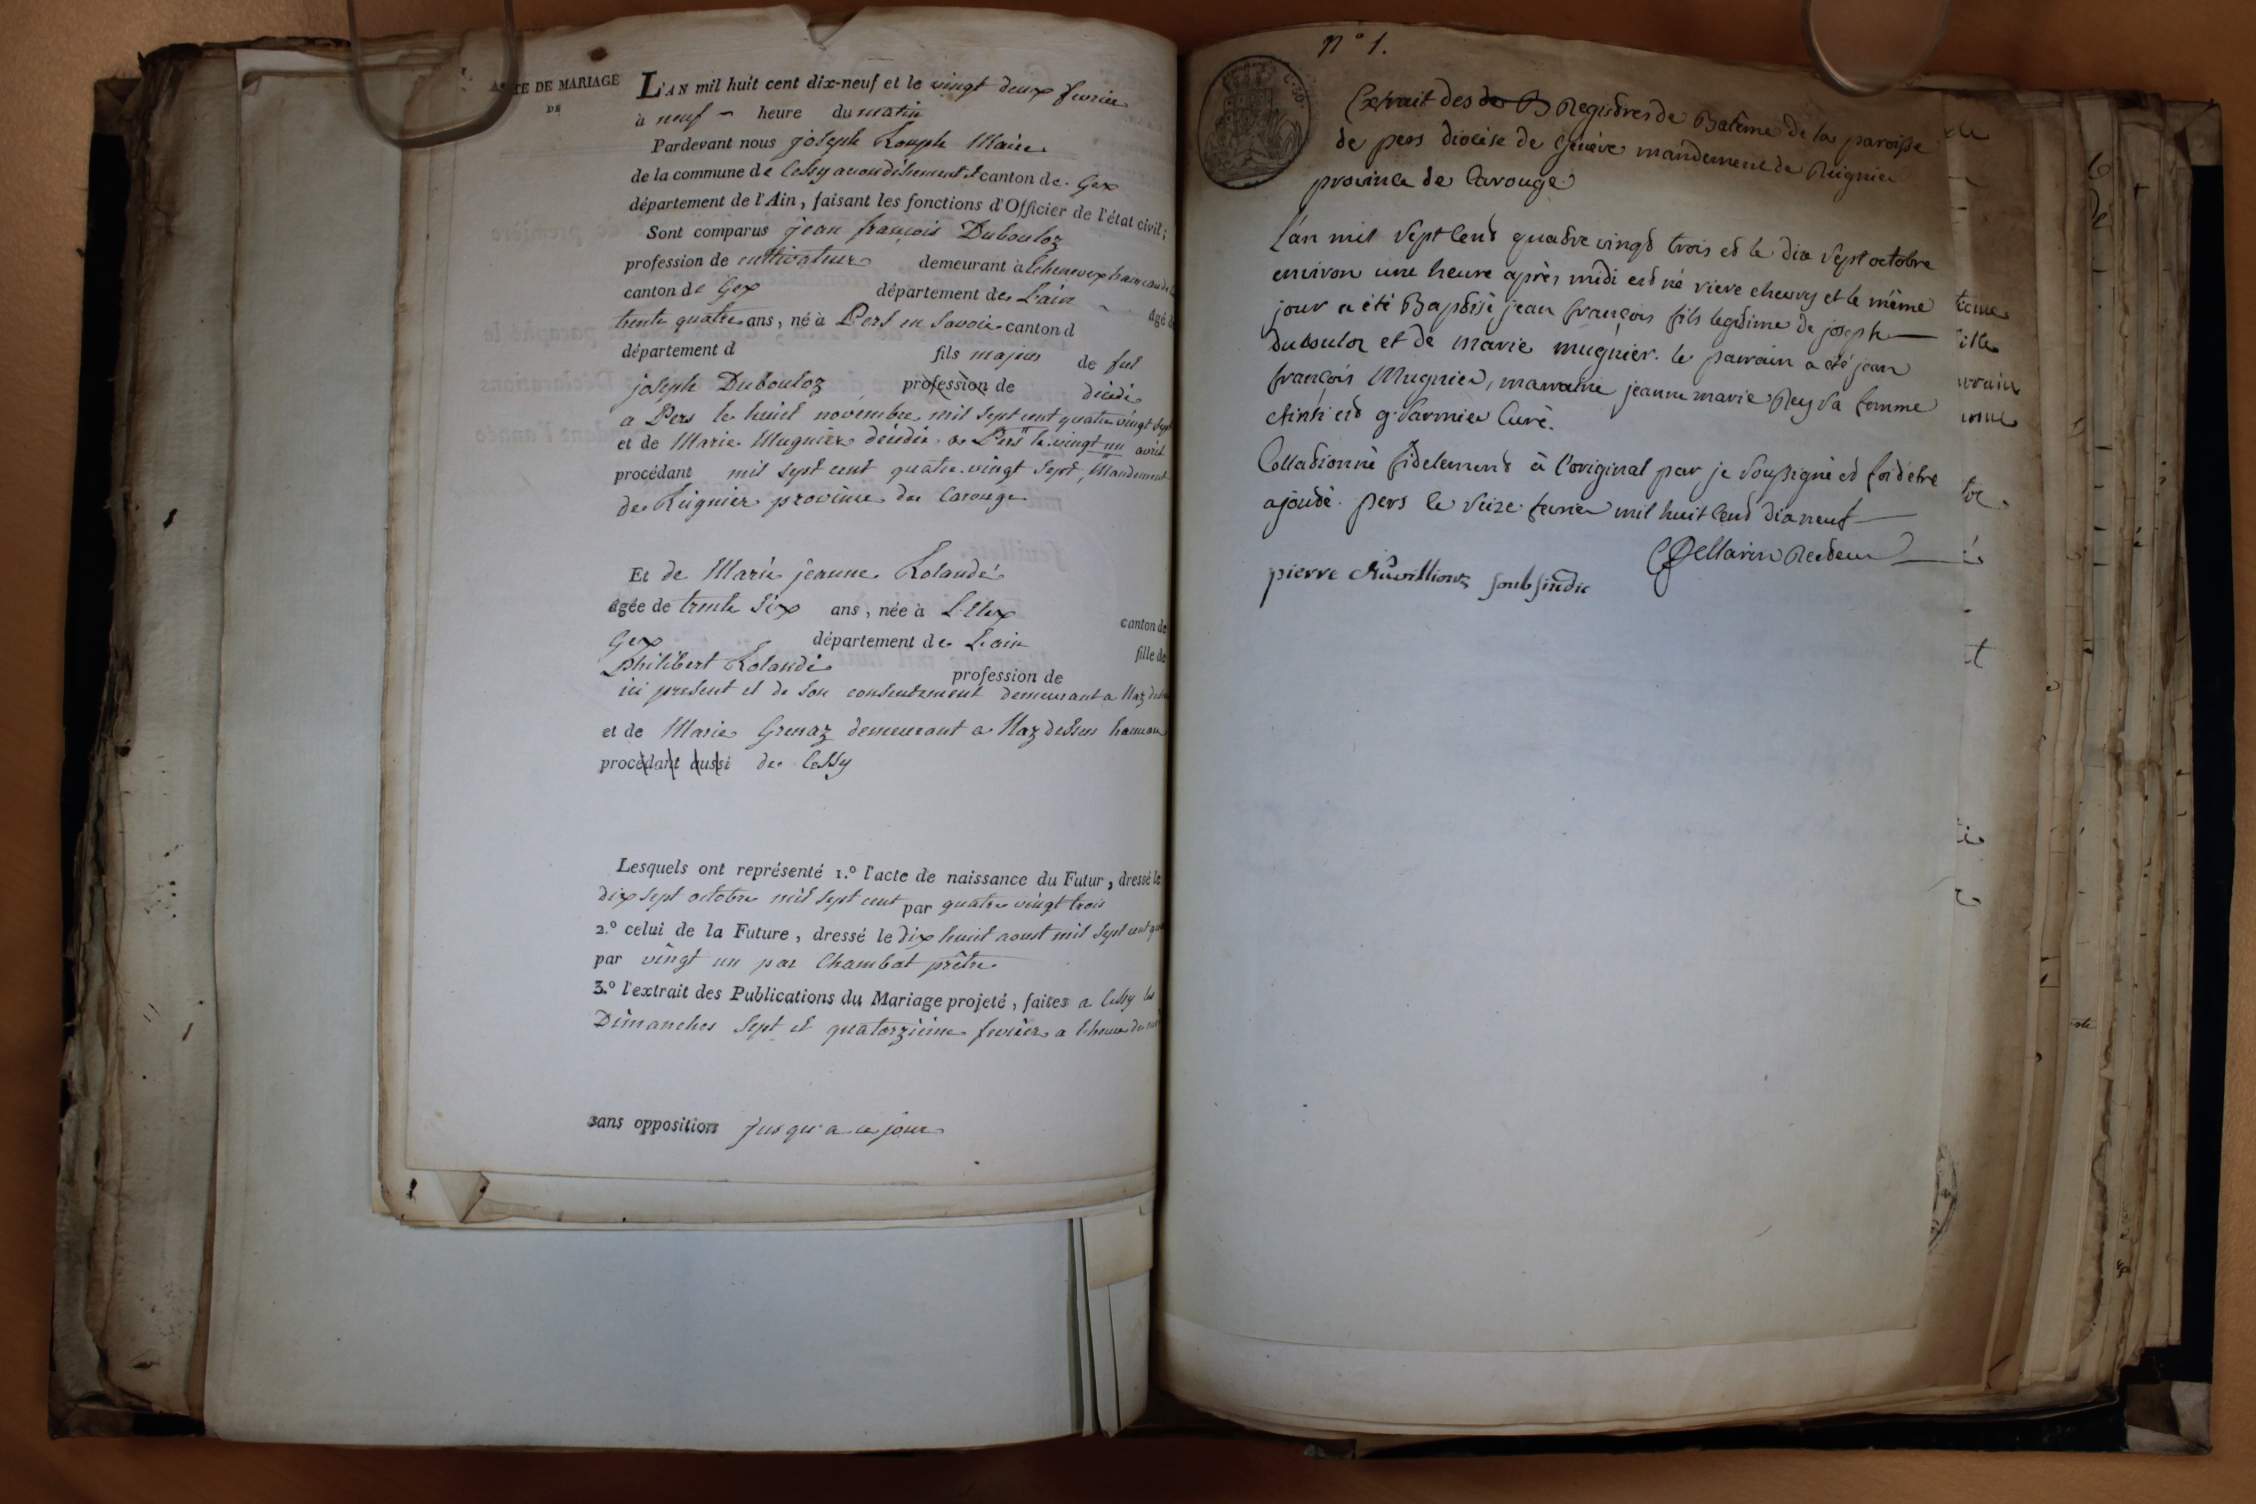 ACTE DE MARIAGE
DE
L'AN mil huit cent dix-neuf et le vingt deux fevrier
à neuf heure du matin
Pardevant nous joseph Rouph Maire
de la commune de Cessy arrondissement et canton de Gex
département de l'Ain, faisant les fonctions d'Officier de l'état civil;
Sont comparus jean françois Dubouloz
profession de cultivateur demeurant à
canton de Gex département de L'ain âgé de
trente quatre ans, né à Pers en Savoie canton d
département d fils majeur de feu
joseph Dubouloz profession de décédé
a Pers le huit novembre mil sept cent quatre vingt sept
et de Marie Mugnier décédée a Pers le vingt un avril
procédant mil sept cent quatre vingt sept, Mandement
de Reignier province de Carouge
Et de Marie jeanne Rolandé
âgée de trente six ans, née à Lelex canton de
Gex département de L'ain fille de
philibert Rolandé profession de
ici present et de son consentement demeurant a Naz dessus
et de Marie Grenaz demeurant a Naz dessus hameau
procédant aussi de Cessy
Lesquels ont représenté 1.º l'acte de naissance du Futur, dressé le
dix sept octobre mil sept cent par quatre vingt trois
2.º celui de la Future, dressé le dix huit aoust mil sept cent
par vingt un par Chambat prêtre
3.º l'extrait des Publications du Mariage projeté, faites a Cessy les
Dimanches sept et quatorzieme fevrier a l'heure de
sans opposition jusqu'a ce jour
N° 1.
Extrait des de B Registres de Batême de la paroisse
de pers diocèse de Genève mandement de Reignier
province de Carouge
L'an mil sept cent quatre vingt trois et le dix sept octobre
environ une heure après midi est né et le même
jour a été Baptisé jean françois fils legitime de joseph
dubouloz et de marie mugnier. le parrain a été jean
françois Mugnier, marraine jeanne marie Rey sa femme
curé.
Collationné fidelement à l'original par je soussigné et foi d'etre
ajouté. pers le seize fevrier mil huit cent dix neuf
Pellarin Recteur
pierre soub sindic